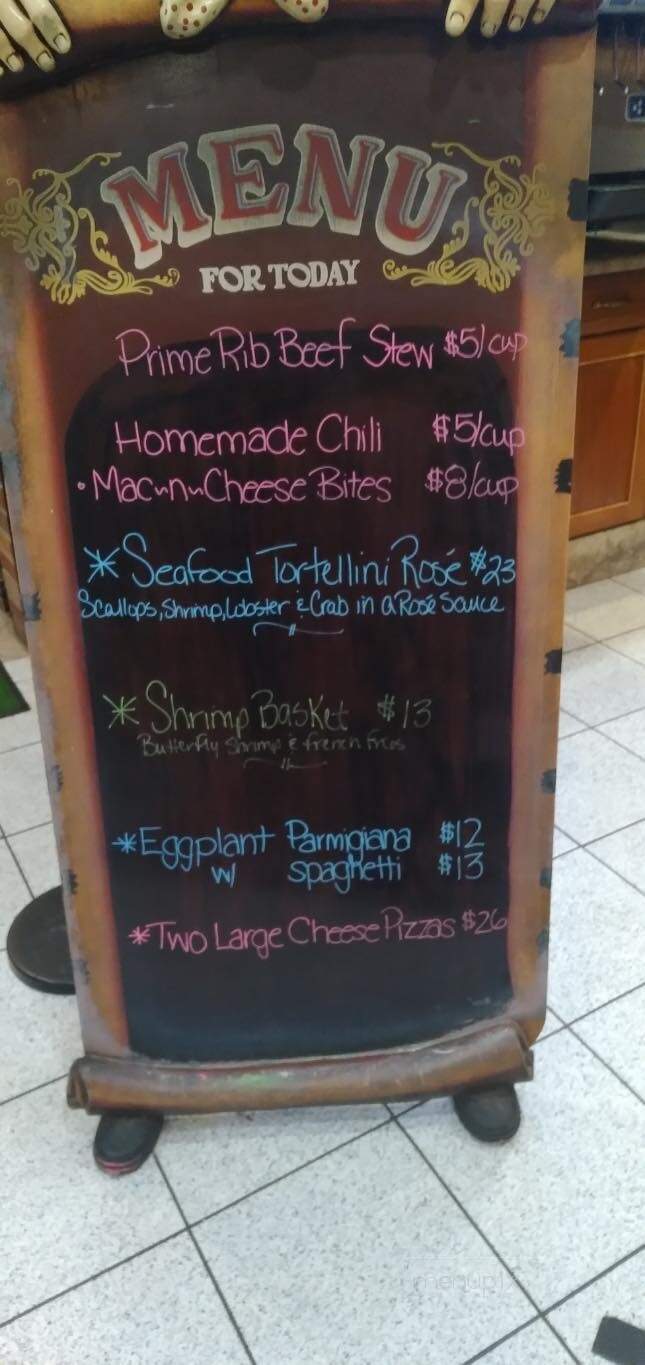 MENU
FOR TODAY
Prime Rib Beef Stew $5/cup
Homemade Chili $5/cup
• Mac~n~Cheese Bites $8/cup
* Seafood Tortellini Rosé $23
Scallops, Shrimp, Lobster & Crab in a Rosé Sauce
* Shrimp Basket $13
Butterfly Shrimp & french fries
* Eggplant Parmigiana $12
w/ spaghetti $13
* Two Large Cheese Pizzas $26